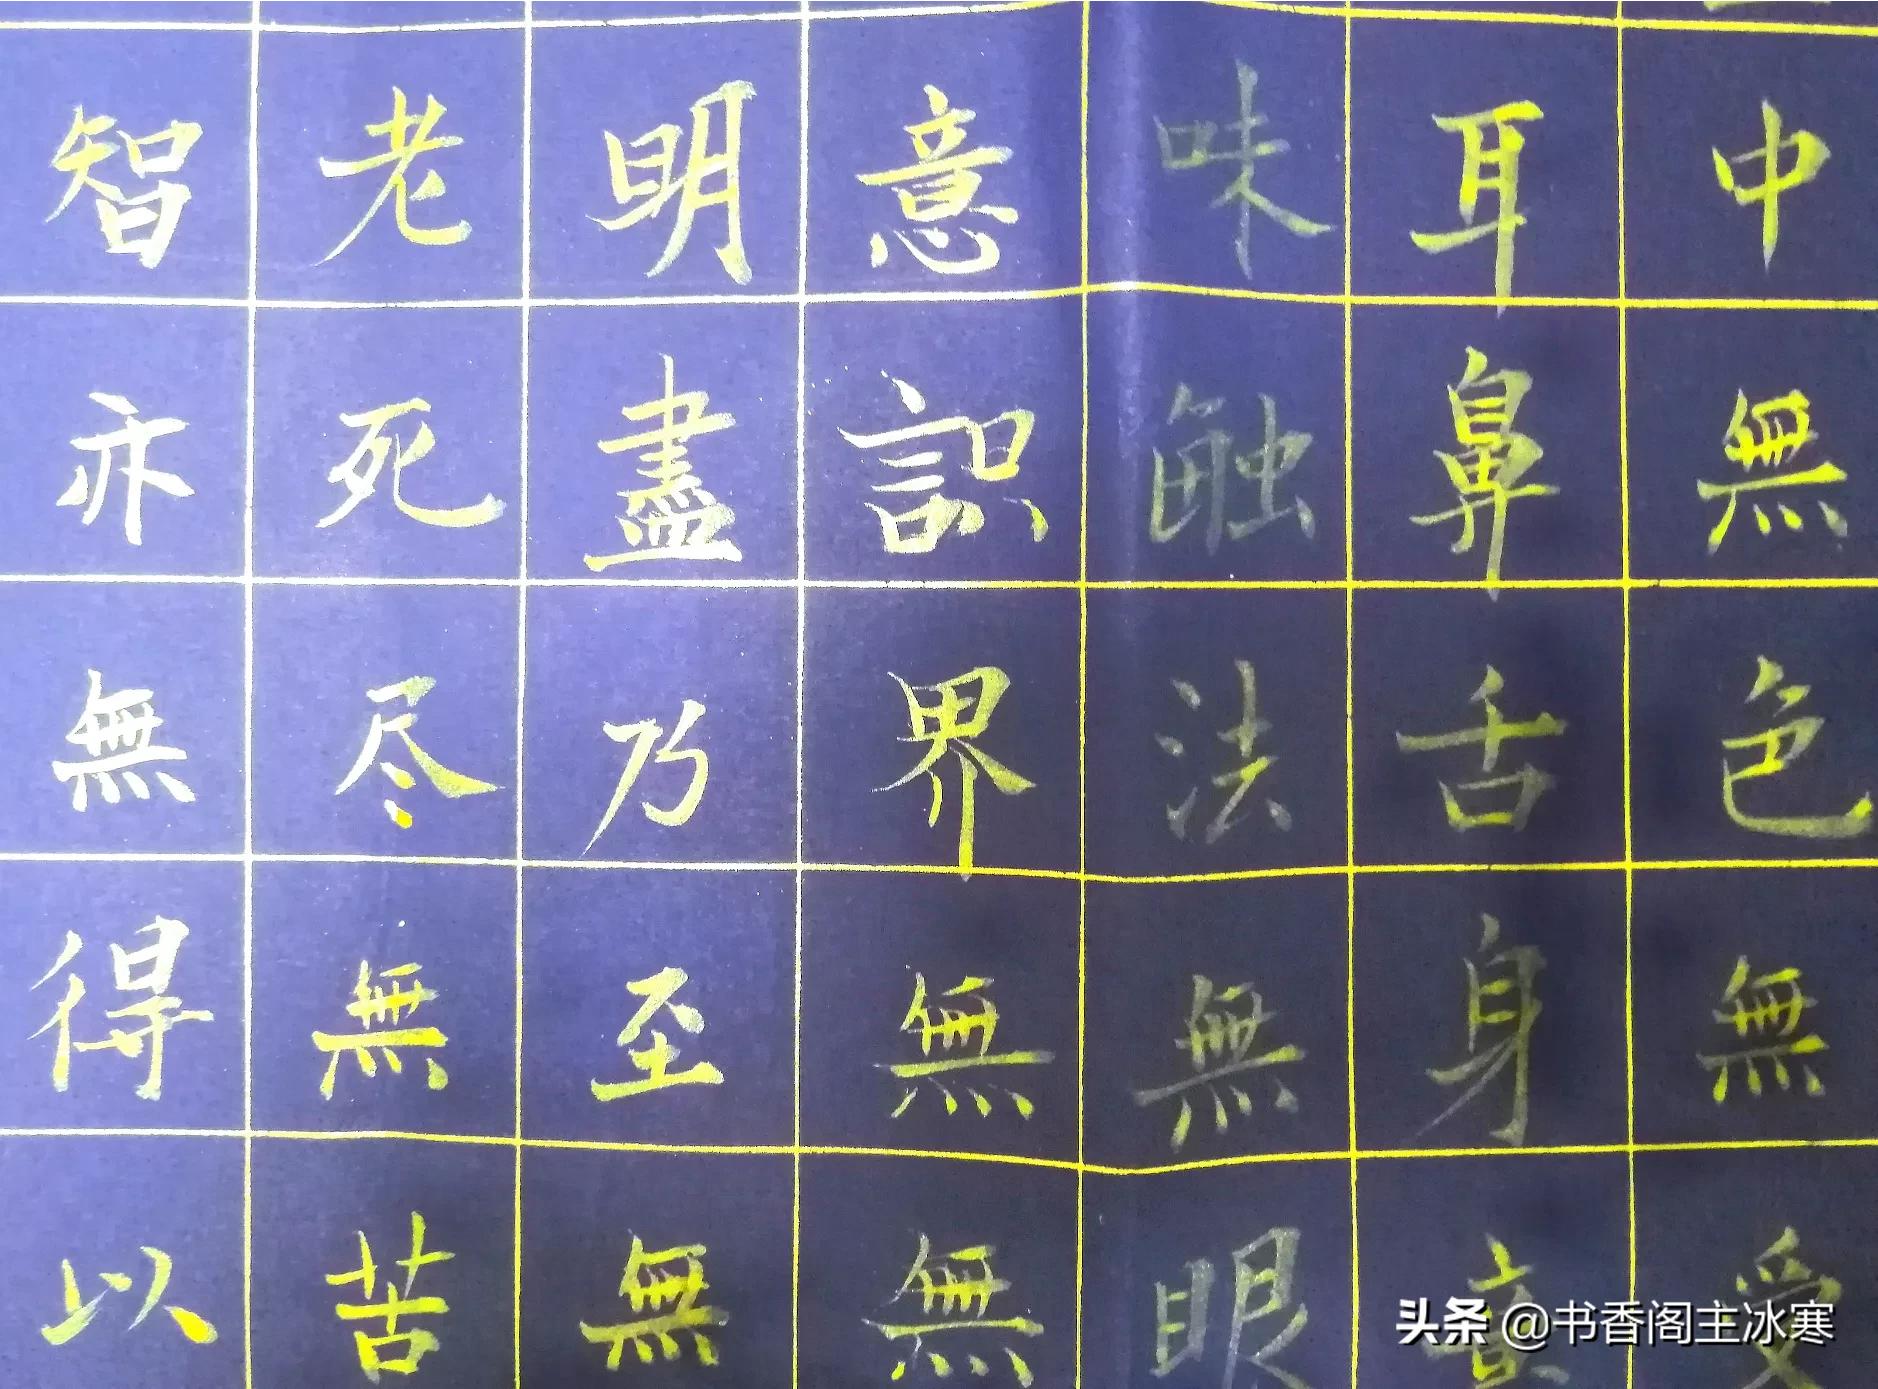 中無色無受
耳鼻舌身意
味触法無眼
意識界無無
明盡乃至無
老死尽無苦
智亦無得以
头条 @书香阁主冰寒